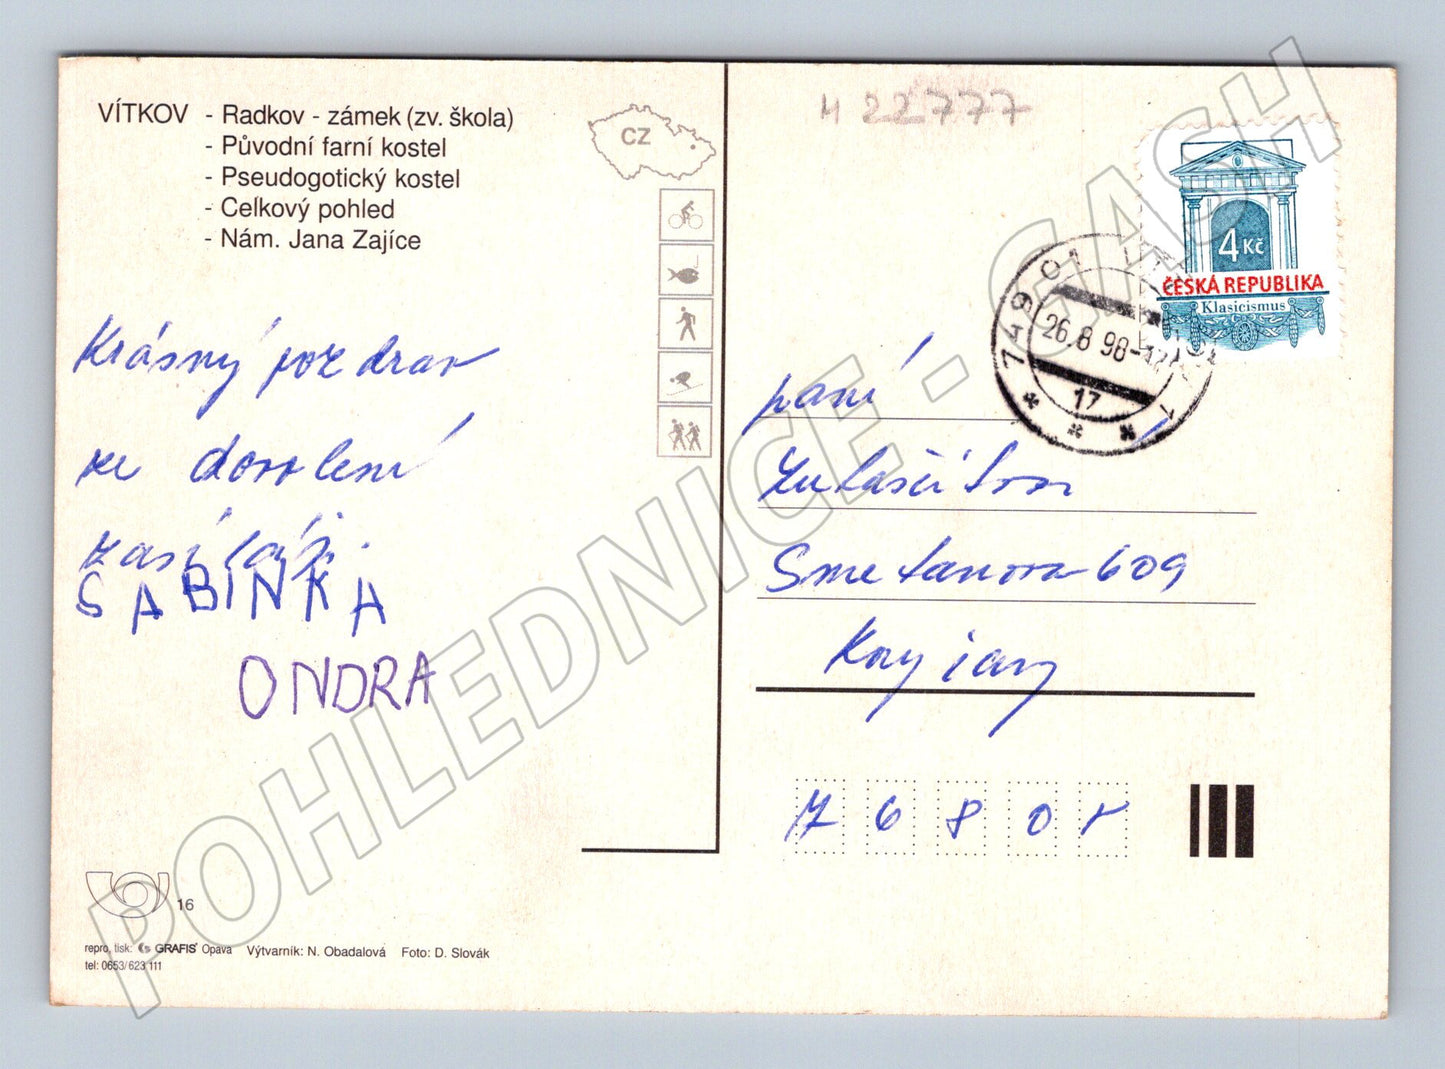 VÍTKOV - Radkov - zámek (zv. škola)
- Původní farní kostel
- Pseudogotický kostel
- Celkový pohled
- Nám. Jana Zajíce
CZ
H 22777
4 Kč
ČESKÁ REPUBLIKA
Klasicismus
749 01 VÍTKOV 1
26.8.98-17
17
Krásný pozdrav
ze dovolení
zasílají:
SABINKA
ONDRA
paní
Smetanova 609
Koryčany
768 05
16
repro, tisk: GRAFIS Opava Výtvarník: N. Obadalová Foto: D. Slovák
tel: 0653/623 111
POHLEDNICE - GASH